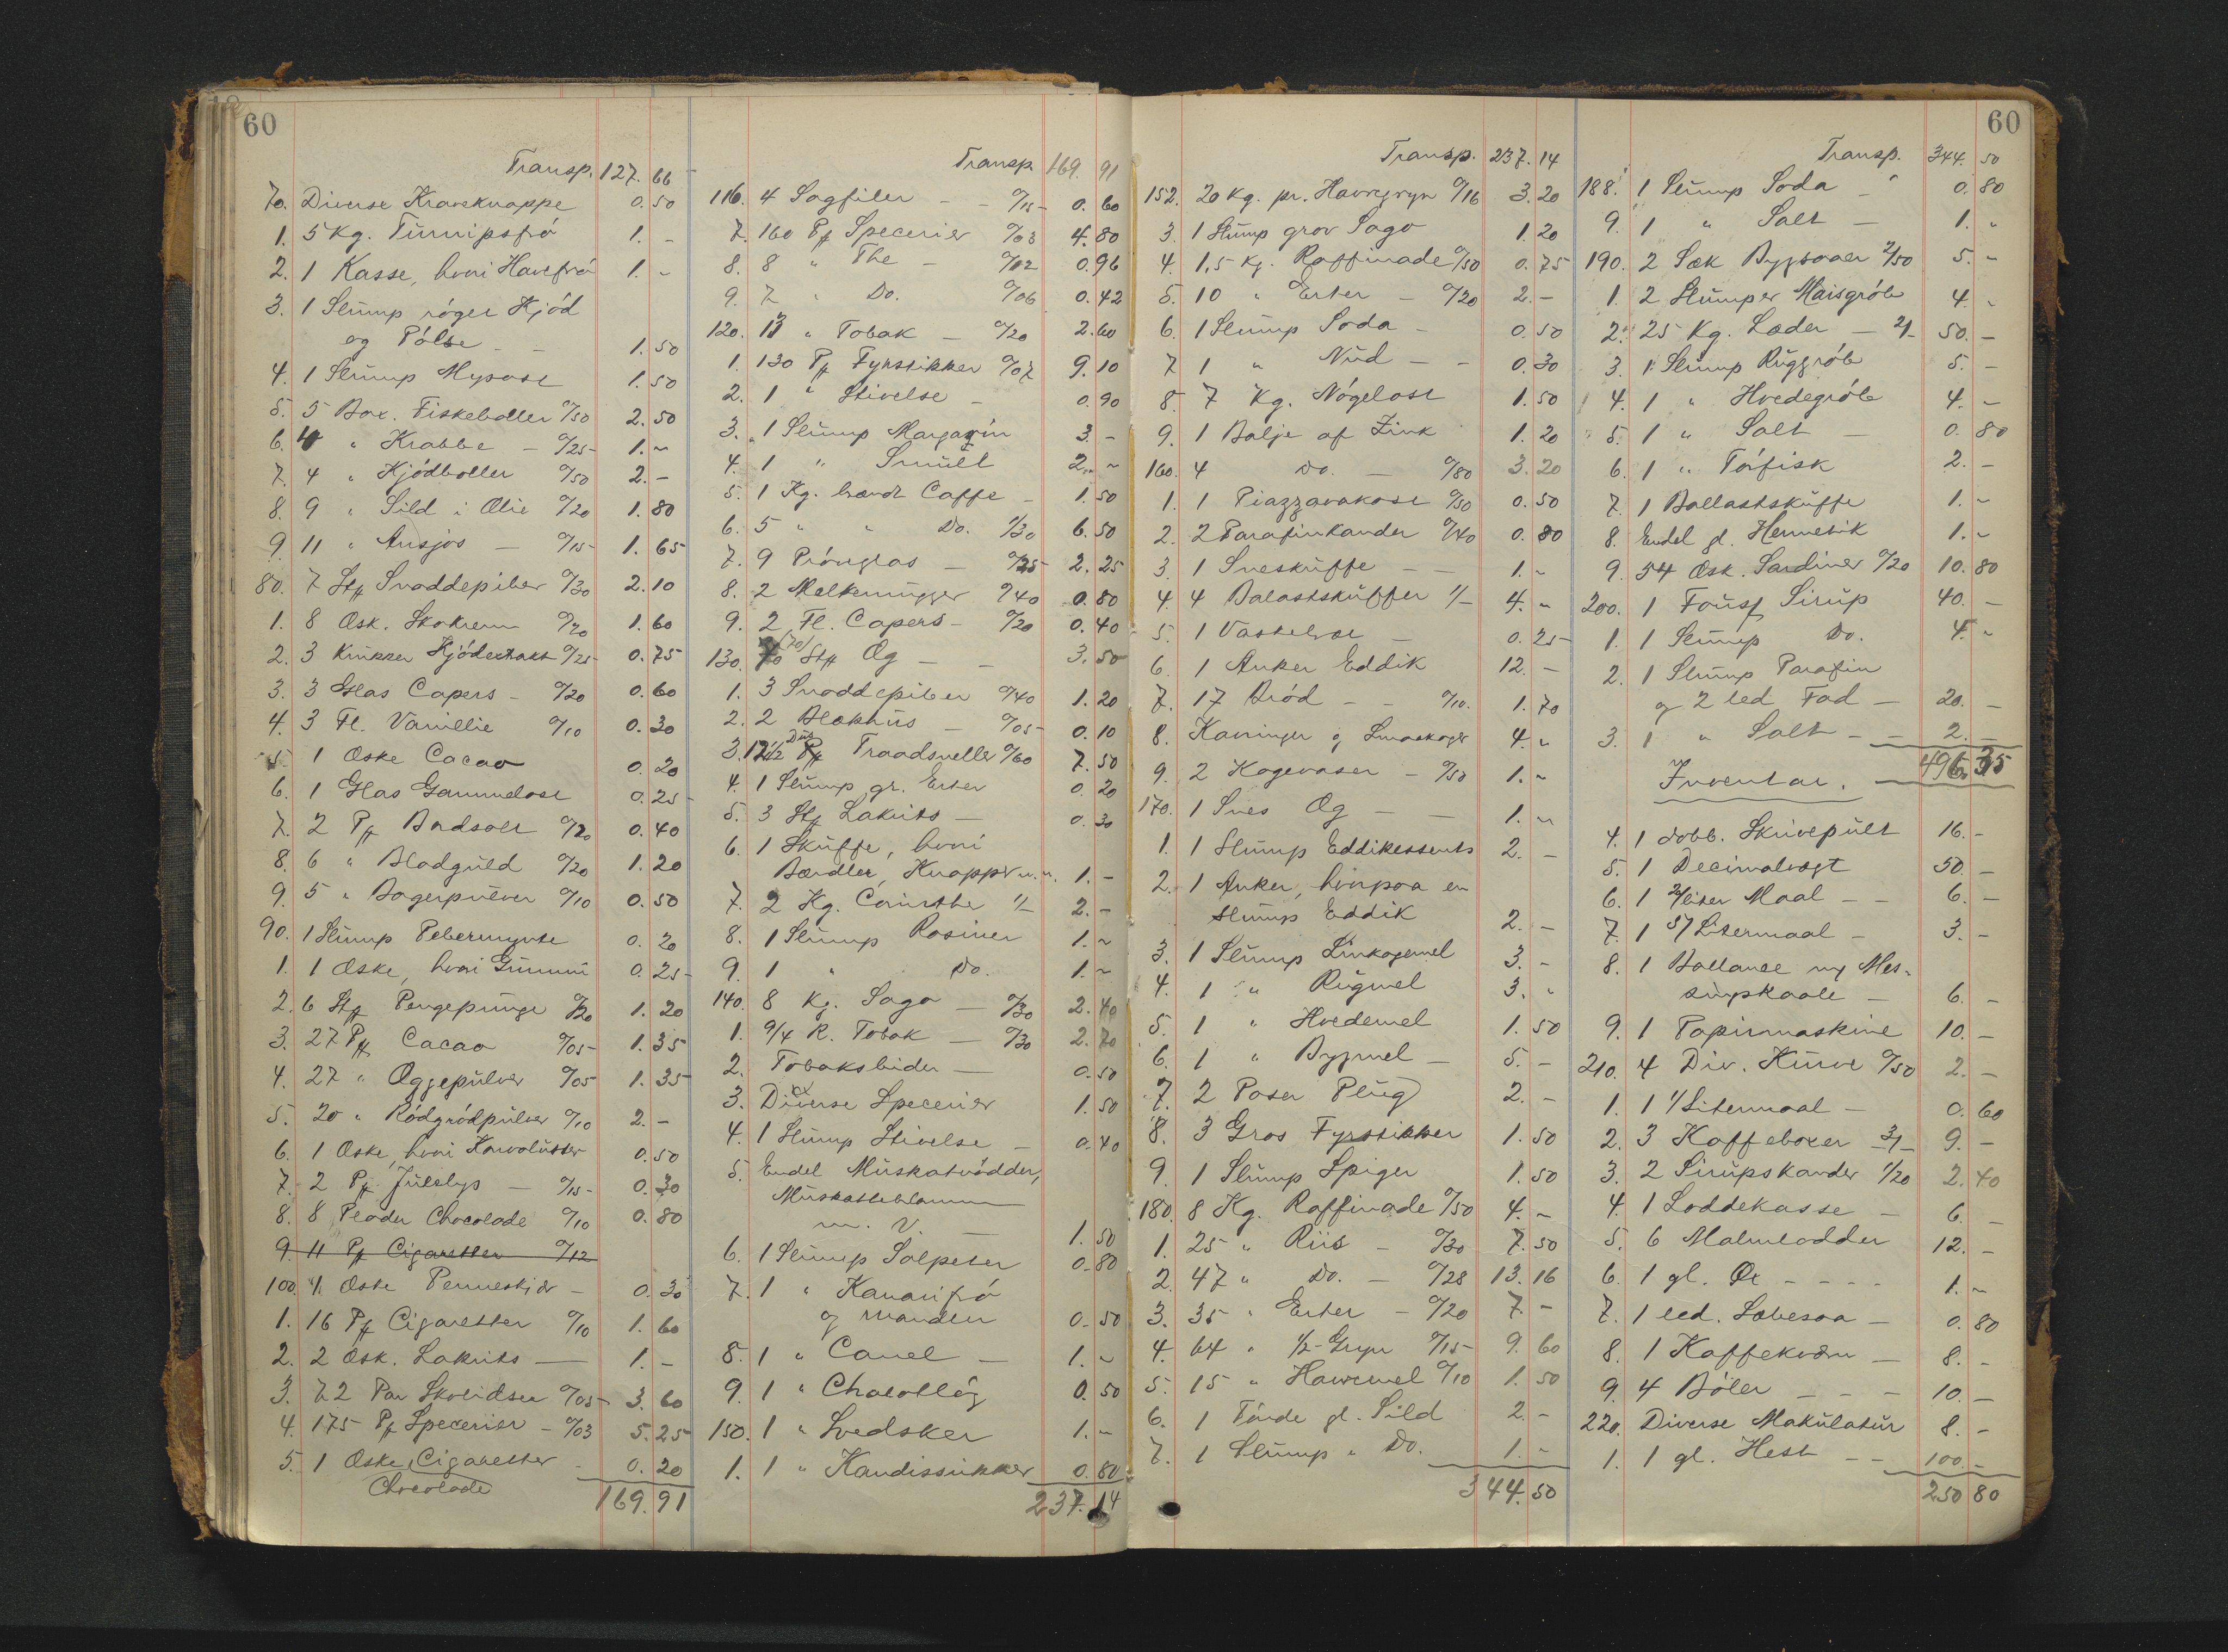 60
Transp. 127. 66
70. Diverse Kraveknappe 0. 50
1. 5 Kg. Turnipsfrö 1. -
2. 1 Kasse, hvori Havefrö 1. -
3. 1 Slump röget Kjöd
og Pölse - - 1. 50
4. 1 Slump Mysost 1. 50
5. 5 Box. Fiskeboller 0/50 2. 50
6. 4 " Krabbe - 0/25 1. -
7. 4 " Kjödboller 0/50 2. -
8. 9 " Sild i Olie 0/20 1. 80
9. 11 " Ansjos - 0/15 1. 65
80. 7 Stk Snaddepiber 0/30 2. 10
1. 8 Æsk. Skokrem 0/20 1. 60
2. 3 Krukker Kjödextakt 0/25 0. 75
3. 3 Glas Capers - 0/20 0. 60
4. 3 Fl. Vanillie 0/10 0. 30
5. 1 Æske Cacao 0. 20
6. 1 Glas Gammelost 0. 25
7. 2 Pk Bordsalt 0/20 0. 40
8. 6 " Bladguld 0/20 1. 20
9. 5 " Bagerpulver 0/10 0. 50
90. 1 Slump Pebermynte 0. 20
1. 1 Æske, hvori Gummi 0. 25
2. 6 Stk Pengepunge 0/20 1. 20
3. 27 Pk Cacao 0/05 1. 35
4. 27 " Æggepulver 0/05 1. 35
5. 20 " Rödgrödpulver 0/10 2. -
6. 1 Æske, hvori 0. 50
7. 2 Pk Julelys - 0/15 0. 30
8. 8 Plader Chocolade 0/10 0. 80
9. 11 Pk Cigaretter 0/12
100. 1 Æske Penneskjær - 0. 30
1. 16 Pk Cigaretter 0/10 1. 60
2. 2 Æsk. Lakrits - 1. -
3. 72 Par Skolidser 0/05 3. 60
4. 175 Pk Specerier - 0/03 5. 25
5. 1 Æske Cigaretter - 0. 20
Chocolade
169. 91
Transp. 169. 91
116. 4 Sagfiler - - 0/15 0. 60
7. 160 Pk Specerier 0/03 4. 80
8. 8 " The - 0/12 0. 96
9. 7 " Do. 0/06 0. 42
120. 13 " Tobak - 0/20 2. 60
1. 130 Pk Fyrstikker 0/07 9. 10
2. 1 " Stivelse - 0. 90
3. 1 Slump Margarin 3. -
4. 1 " Smult 2. -
5. 1 Kg. brændt Caffe - 1. 50
6. 5 " " Do. 1/30 6. 50
7. 9 Prönglas - 0/25 2. 25
8. 2 Melkemugger 0/40 0. 80
9. 2 Fl. Capers - 0/20 0. 40
130. 70 (70) Stk Æg - - 3. 50
1. 3 Snaddepiber 0/40 1. 20
2. 2 Blækhus - 0/05 0. 10
3. 12 1/2 Dus Pk Traadsneller 0/60 7. 50
4. 1 Slump gr. Erter 0. 20
5. 3 Stk Lakrits - 0. 30
6. 1 Skuffe, hvori
Bændler, Knapper m.m. 1. -
7. 2 Kg. Corinther 1/- 2. -
8. 1 Slump Rosiner 1. -
9. 1 " Do. 1. -
140. 8 Kg. Sago - 0/30 2. 40
1. 9/4 R. Tobak - 0/30 2. 70
2. Tobaksbider - 0. 50
3. Diverse Specerier 1. 50
4. 1 Slump Stivelse - 0. 40
5. Endel Muskatnödder,
Muskatteblomme
m. V. - 1. 50
6. 1 Slump Salpeter 0. 80
7. 1 " Kanarifrö
og Mandler 0. 50
8. 1 " Canel - 1. -
9. 1 " Chalotlög 0. 50
150. 1 " Svedsker 1. -
1. 1 " Kandissukker 0. 80
237. 14
60
Transp. 237. 14
152. 20 Kg. pr. Havregryn 0/16 3. 20
3. 1 Slump grov Sago 1. 20
4. 1,5 Kg. Raffinade 0/50 0. 75
5. 10 " Erter - 0/20 2. -
6. 1 Slump Soda - 0. 50
7. 1 " Nud - - 0. 30
8. 7 Kg. Nögelost 1. 50
9. 1 Balje af Zink 1. 20
160. 4 Do. - 0/80 3. 20
1. 1 Piazzavakost 0/50 0. 50
2. 2 Parafinkander 0/40 0. 80
3. 1 Sneskuffe - - 1. -
4. 4 Balastskuffer 1/- 4. -
5. 1 - 0. 25
6. 1 Anker Eddik 12. -
7. 17 Bröd - - 0/10. 1. 70
8. Kavringer og Smaakager 4. -
9. 2 Kagevaser - 0/50 1. -
170. 1 Snes Æg - - 1. -
1. 1 Slump Eddikessents 2. -
2. 1 Anker, hvorpaa en
Slump Eddik 2. -
3. 1 Slump Linkagemel 3. -
4. 1 " Rugmel 3. -
5. 1 " Hvedemel 1. 50
6. 1 " Bygmel - 5. -
7. 2 Poser Plug 2. -
8. 3 Gros Fyrstikker 1. 50
9. 1 Slump Spiger 1. 50
180. 8 Kg. Raffinade 0/50 4. -
1. 25 " Riis - 0/30 7. 50
2. 47 " Do. - 0/28 13. 16
3. 35 " Erter - 0/20 7. -
4. 64 " 1/2-Gryn 0/15 9. 60
5. 15 " Havremel 0/10 1. 50
6. 1 Tönde gl. Sild 2. -
7. 1 Slump " Do. 1. -
344. 50
Transp. 344. 50
188. 1 Slump Soda - " 0. 80
9. 1 " Salt - 1. "
190. 2 Sæk Bygsaaer 2/50 5. -
1. 2 Slumper Maisgröb 4. -
2. 25 Kg. Læder - 2/- 50. -
3. 1 Slump Ruggröb 5. -
4. 1 " Hvedegröb 4. -
5. 1 " Salt - 0. 80
6. 1 " Törfisk 2. -
7. 1 Ballastskuffe 1. -
8. Endel gl. Hermetik 1. -
9. 54 Æsk. Sardiner 0/20 10. 80
200. 1 Foust Sirup 40. -
1. 1 Slump Do. 4. -
2. 1 Slump Parafin
og 2 led Fad - 20. -
3. 1 " Salt - - 2. -
496. 35
Inventar.
4. 1 dobb. Skrivepult 16. -
5. 1 Decimalvægt 50. -
6. 1 2/liter Maal - - 6. -
7. 1 5/Litermaal - 3. -
8. 1 Ballance m/ Mes-
singskaale - 6. -
9. 1 Papirmaskine 10. -
210. 4 Div. Kurve 0/50 2. -
1. 1 1/Litermaal - 0. 60
2. 3 Kaffeboxer 3/- 9. -
3. 2 Sirupskander 1/20 2. 40
4. 1 Loddekasse - 6. -
5. 6 Malmlodder 12. -
6. 1 gl. Öx - - - - 1. -
7. 1 led. - 0. 80
8. 1 Kaffekværn - 8. -
9. 4 Böler - - - 10. -
220. Diverse Makulatur 8. -
1. 1 gl. Hest - - 100. -
250 80